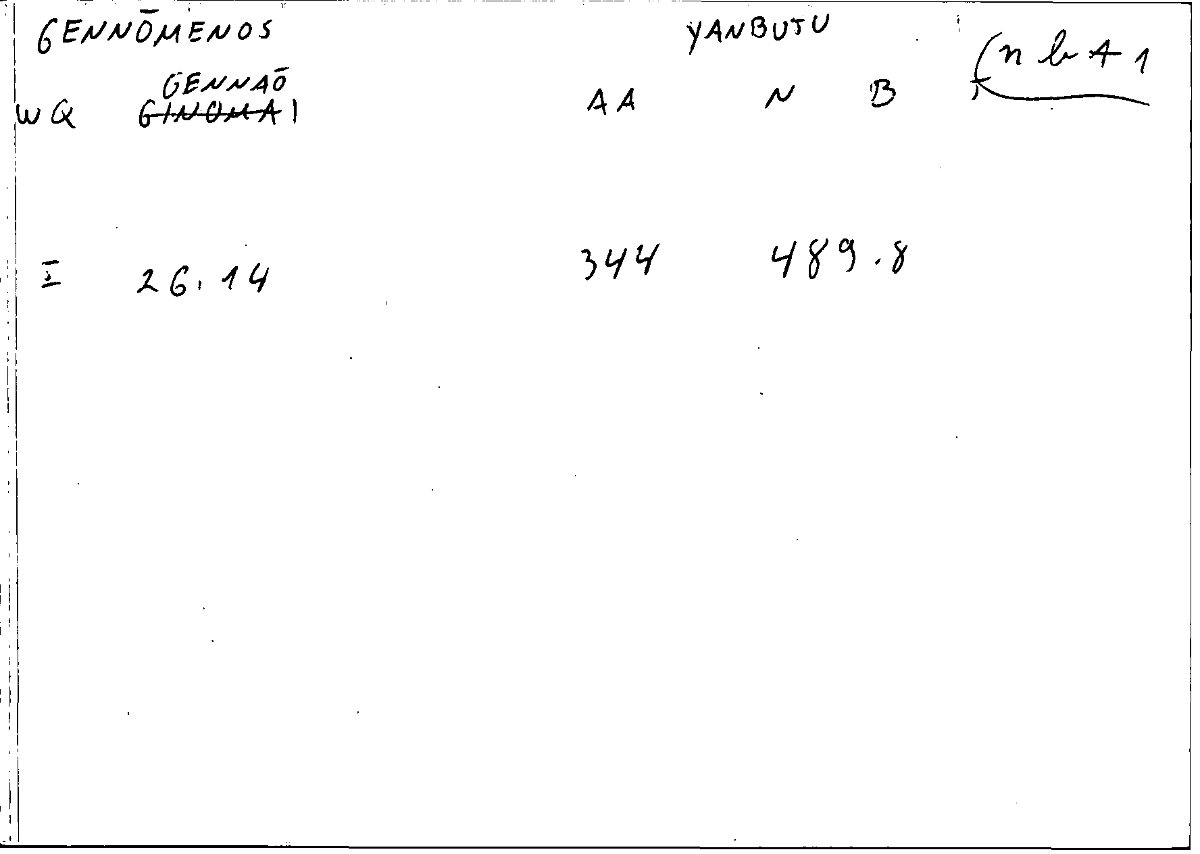 GENNŌMENOS YANBUTU (n b t 1
GENNAŌ
WQ GINOMAI AA N B
I 26.14 344 489.8